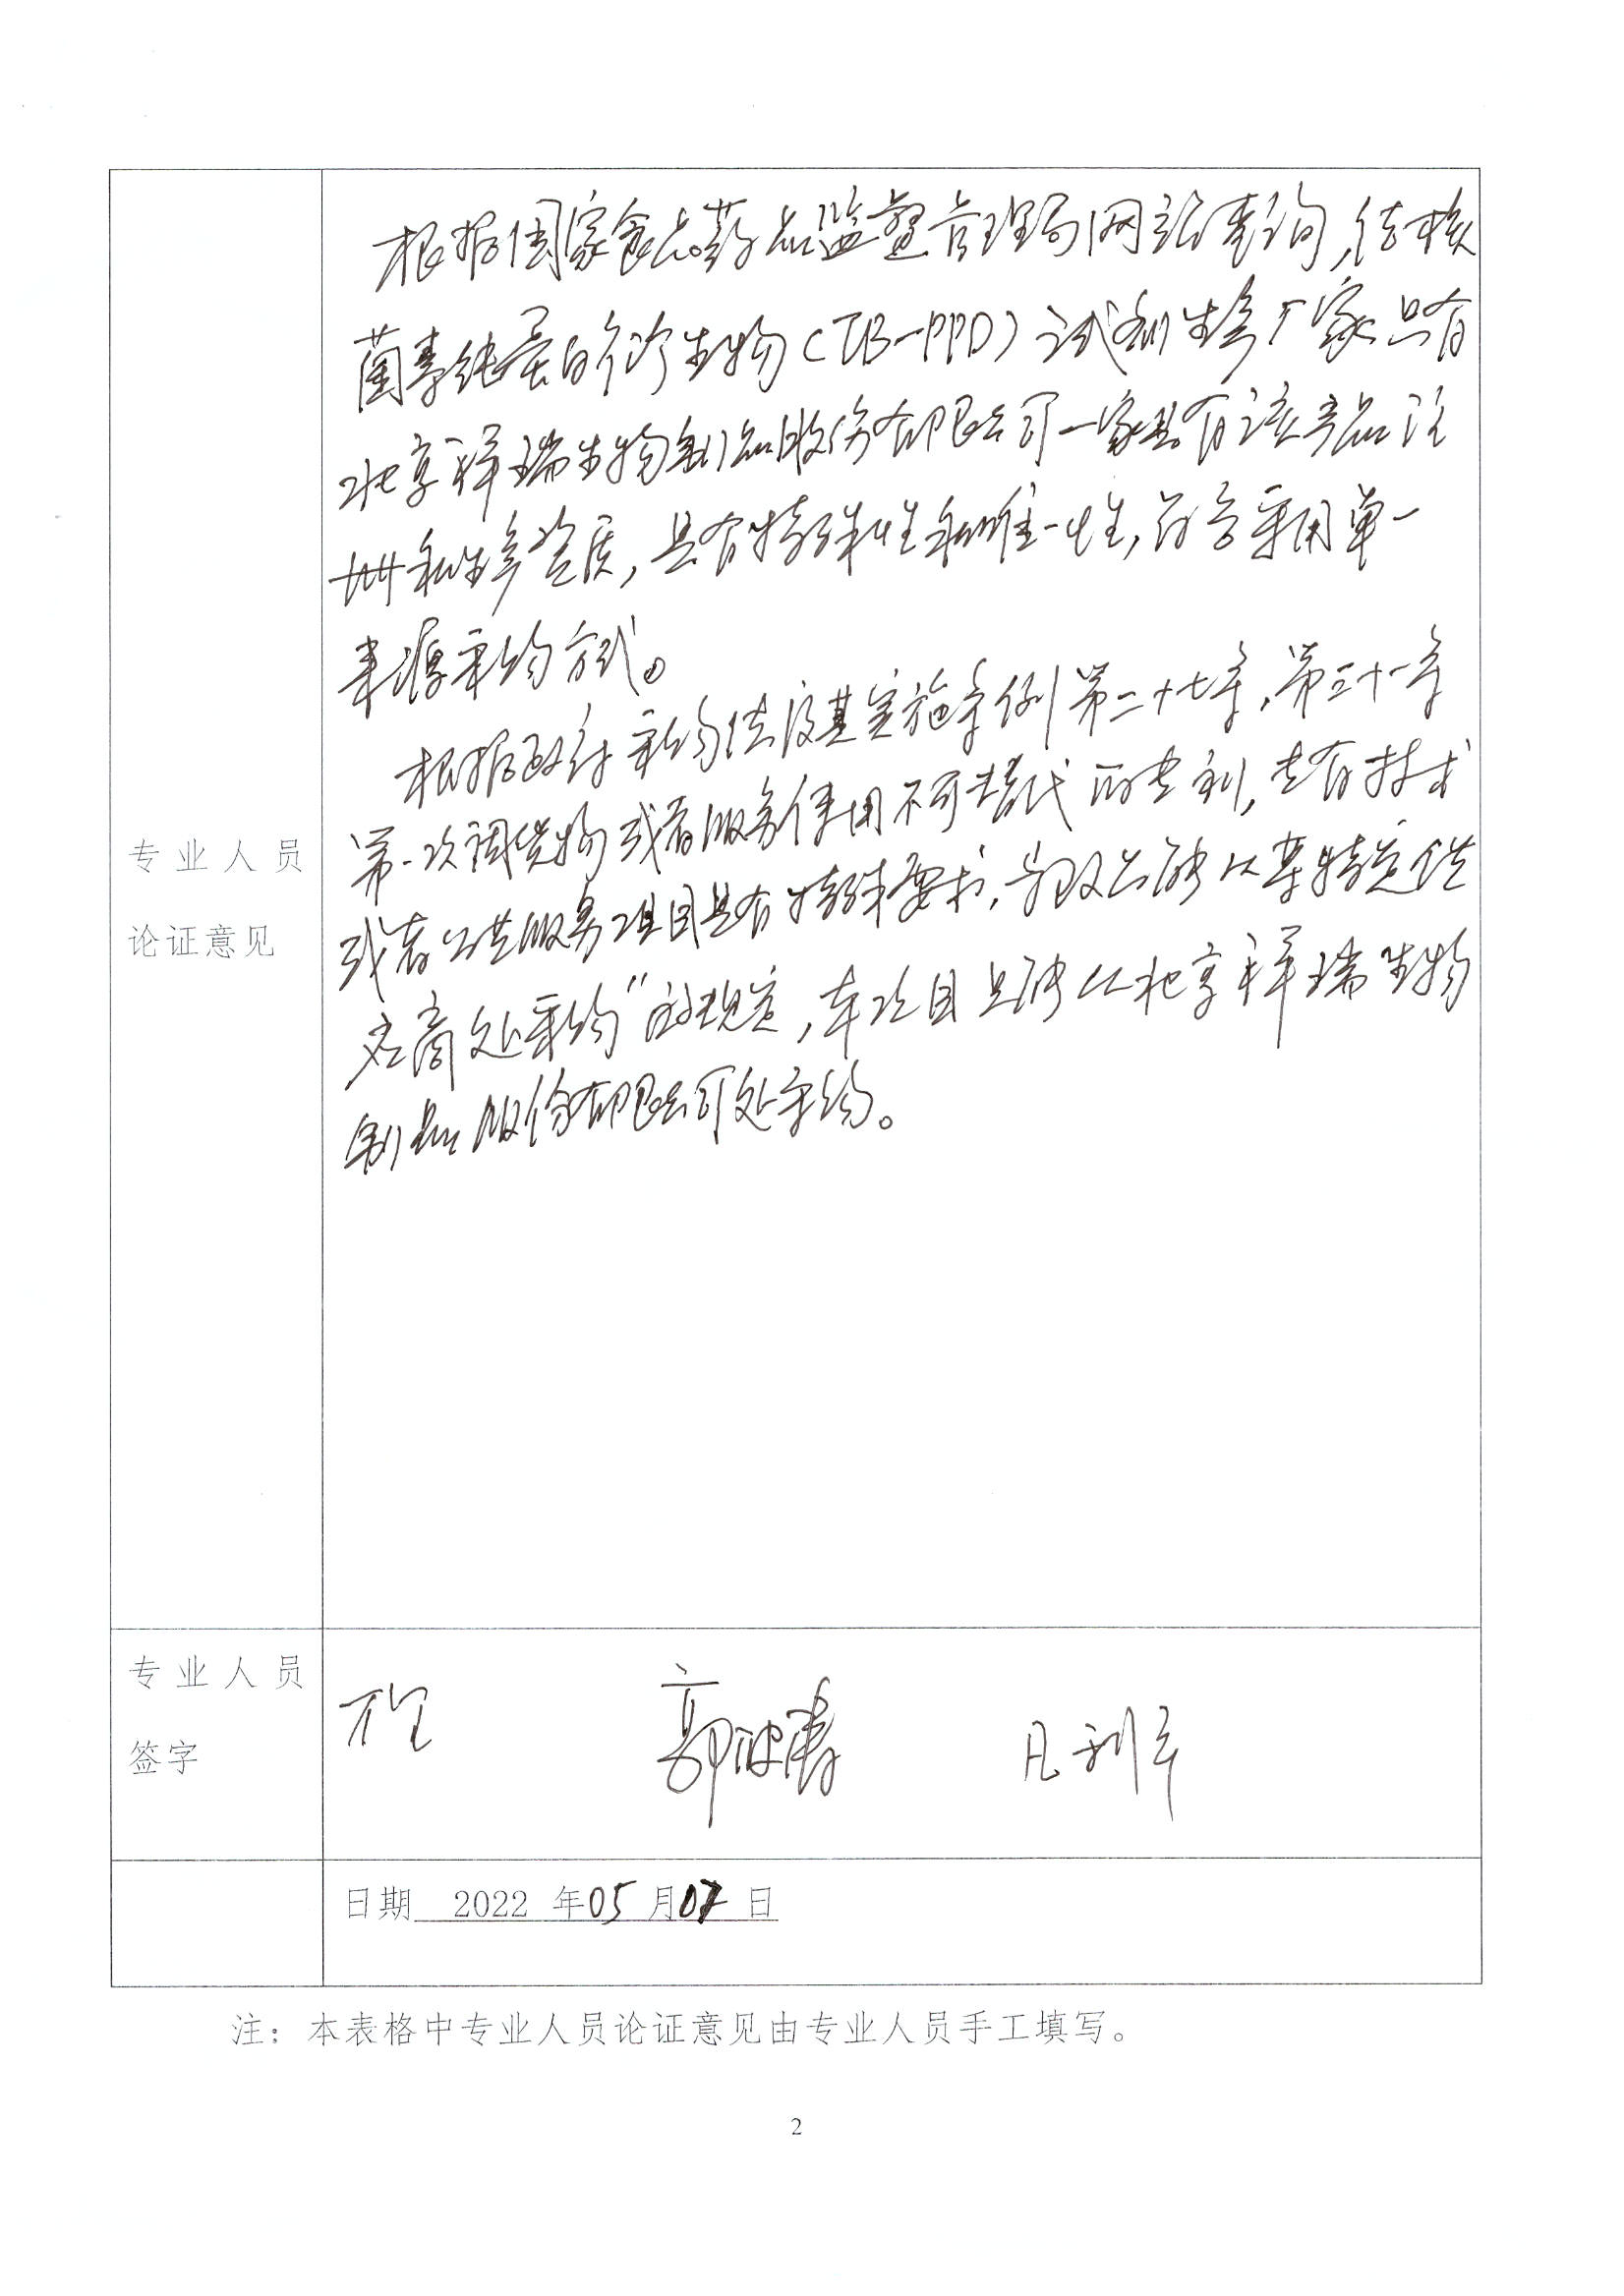 根据国家食品药品监督管理局网站查询,结核
菌素纯蛋白衍生物(TB-PPD)试剂生产厂家只有
北京祥瑞生物制品股份有限公司一家具有该产品注
册和生产资质,具有特殊性和唯一性,符合采用单一
来源采购方式。
根据政府采购法及其实施条例第二十七条,第三十一条
第一次调货物或者服务使用不可替代的专利,专有技术
或者公共服务项目具有特殊要求,导致只能从某特定供
应商处采购"的规定,本项目只能从北京祥瑞生物
制品股份有限公司处采购。
专业人员
论证意见
专业人员
签字
郭
日期 2022 年05月07日
注:本表格中专业人员论证意见由专业人员手工填写。
2